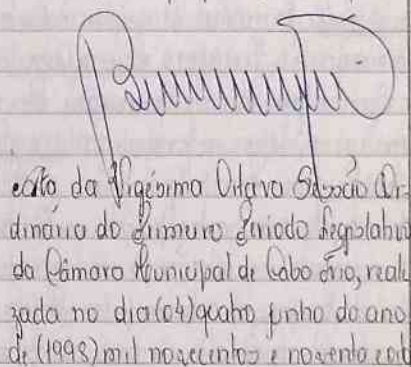 Ata da Vigésima Oitava Sessão Or-
dinária do Primeiro Período Legislativo
da Câmara Municipal de Cabo Frio, reali-
zada no dia (04) quatro junho do ano
de (1998) mil novecentos e noventa e oito